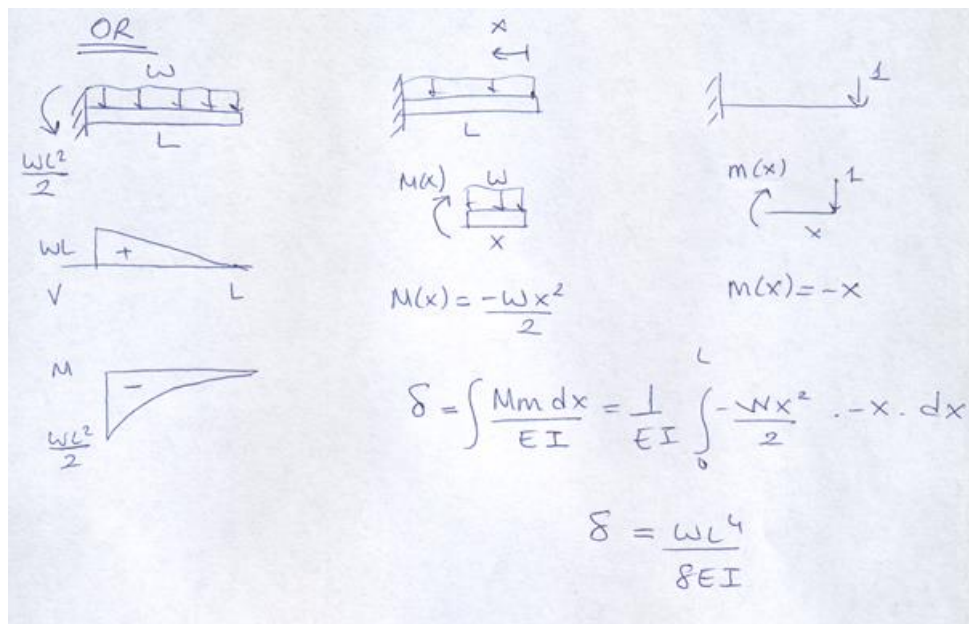 OR
w
L
wL²/2
wL
+
V
L
M
−
wL²/2
x
L
M(x)
w
x
M(x) = -wx²/2
1
m(x)
1
x
m(x) = -x
δ = ∫ Mm dx / EI = 1/EI ∫₀ᴸ -wx²/2 . -x . dx
δ = wL⁴/8EI